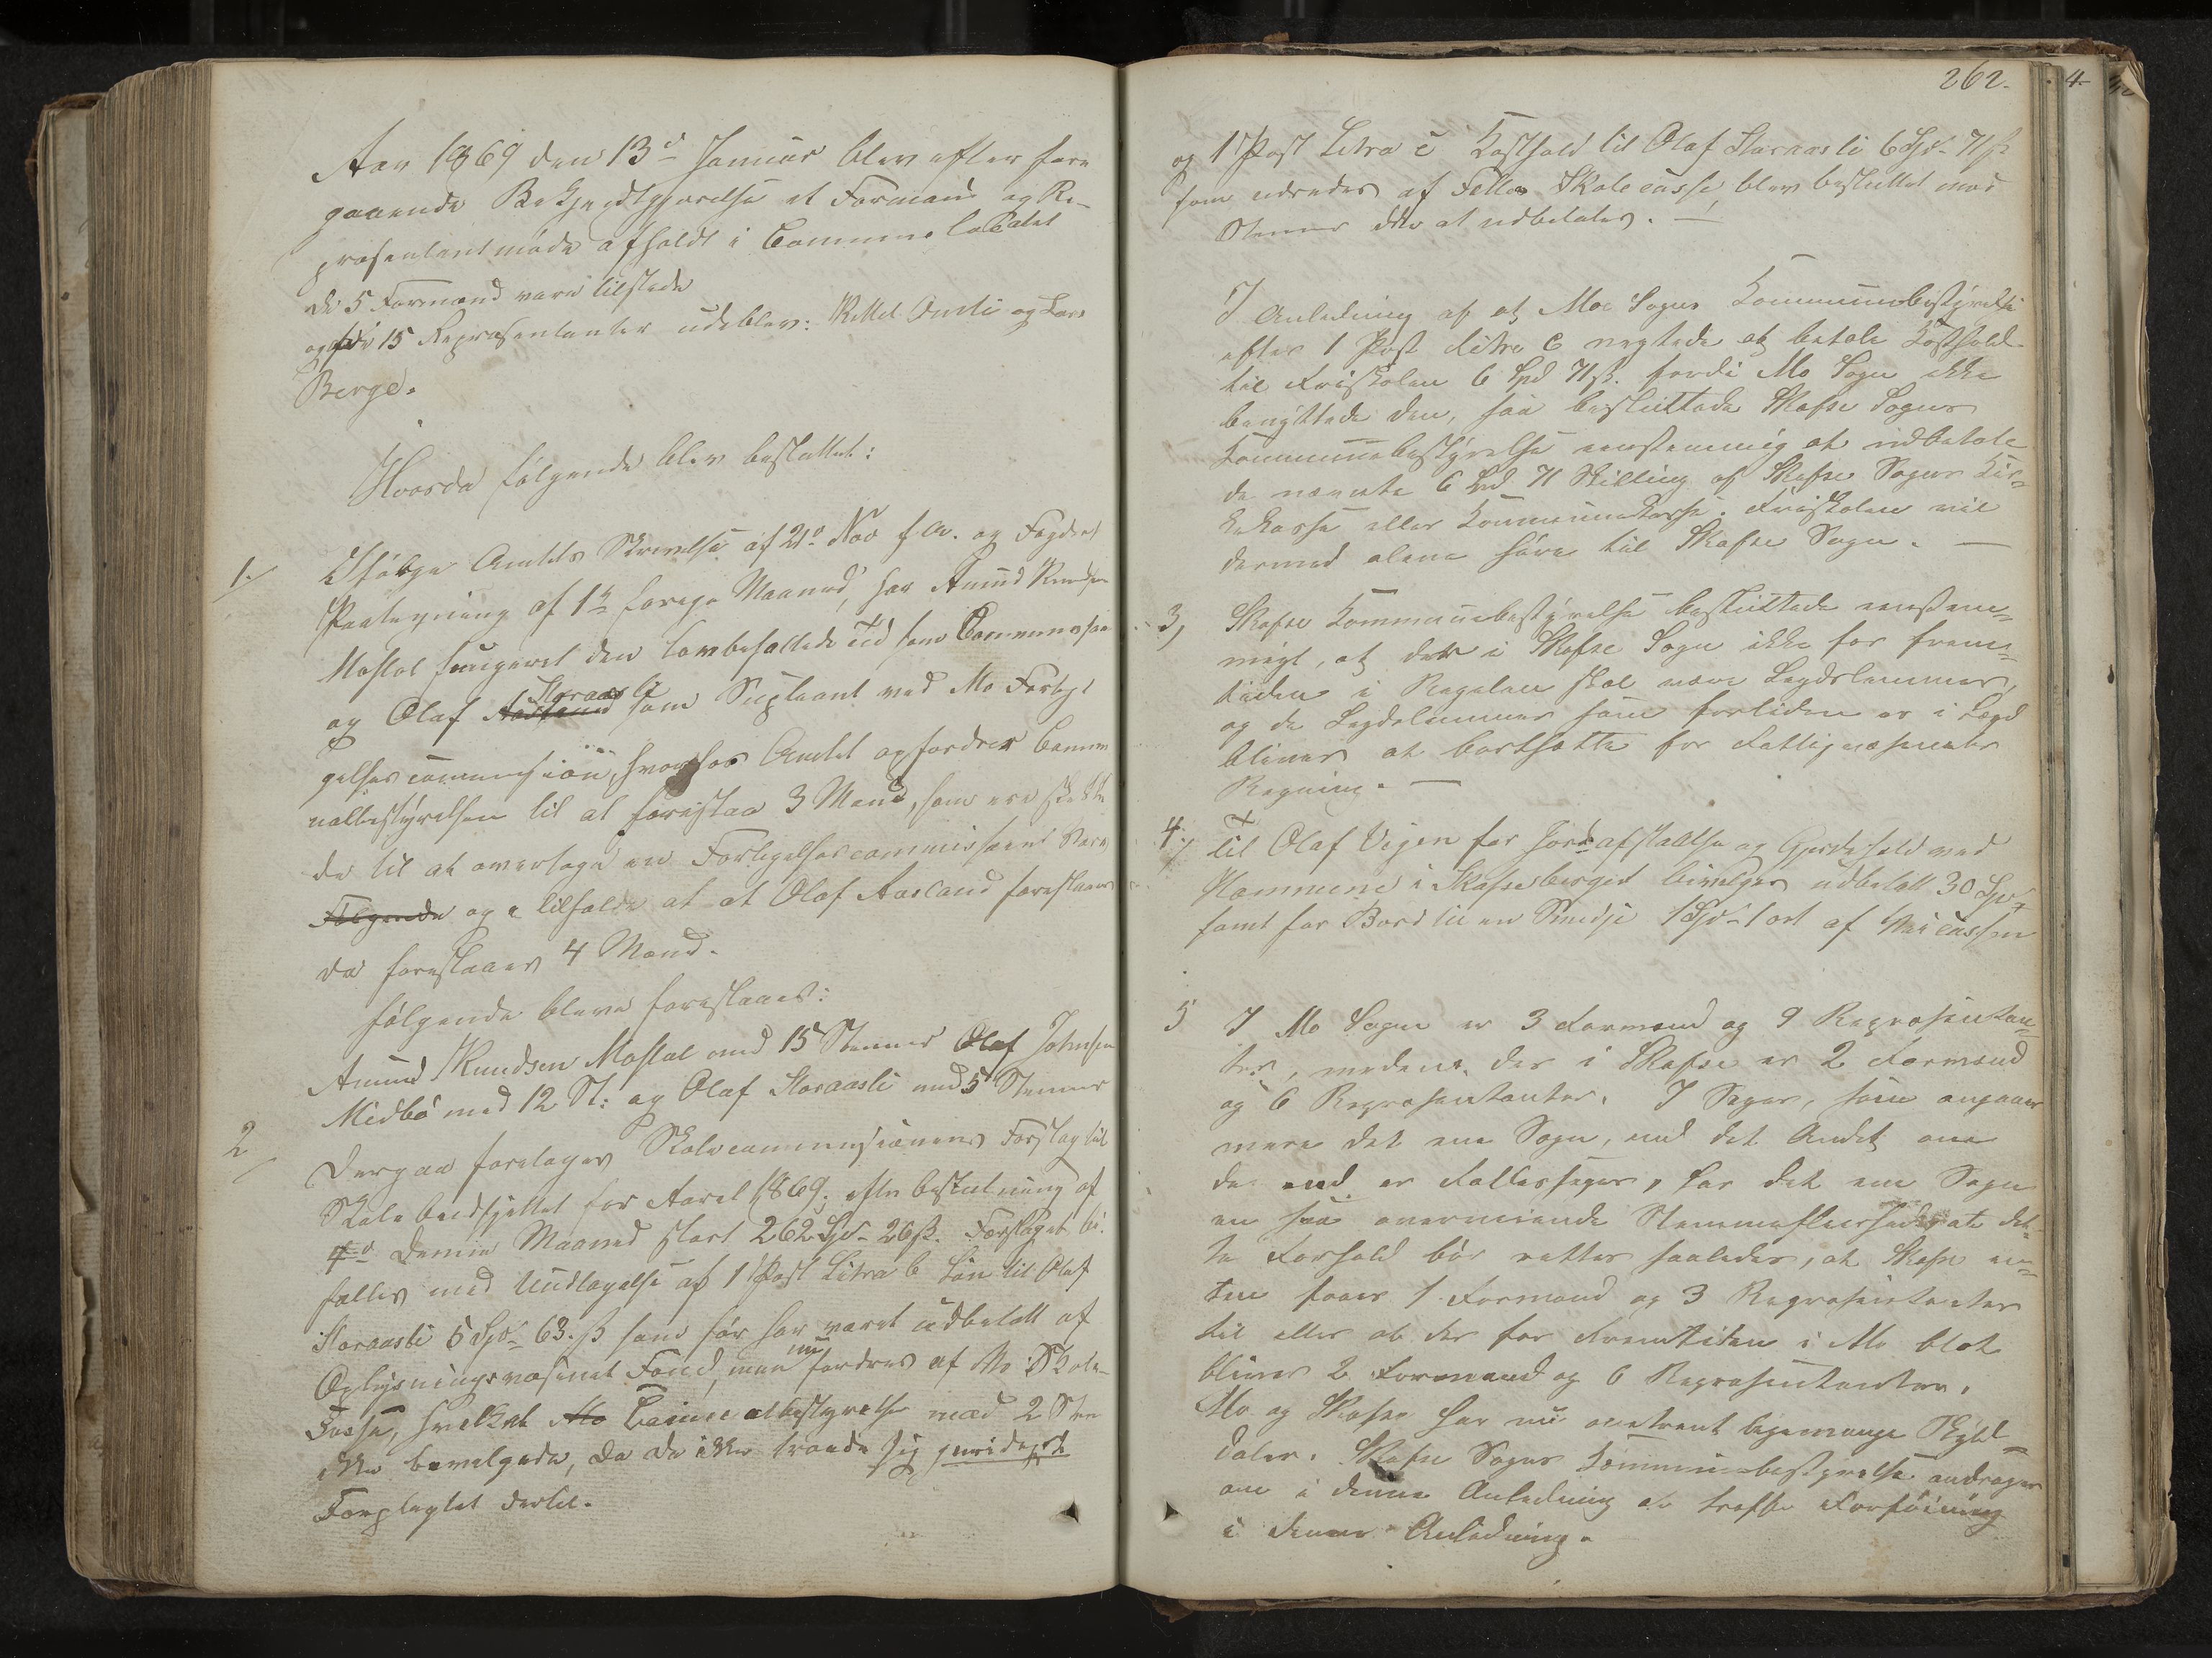 Aar 1869 den 13de Januar blev efter fore
gaaende Bekjendtgjørelse et Formand og Re-
præsentantmøde afholdt i Communelocalet
de 5 Formænd vare tilstede
og af de 15 Repræsentanter udeblev: Kittel Omli og Lars
Berge.
Hvorda følgende blev besluttet:
1. Ifølge Amtets Skrivelse af 21de Nov f. A. og Fogdens
Paategning af 1ste forrige Maaned, har Amund Knudsen
Mostøl fungeret den lovbefalede Tid som Commissær
og Olaf Aasland Storaasli som Supleant ved Mo Forligel
gelsescommission, hvorfor Amtet opfordrer Commu
nalbestyrelsen til at foreslaa 3 Mænd, som ere skikke
de til at overtage en Forligelsescommissairs Værv
Følgende og i tilfælde at at Olaf Aasland foreslaaes
da foreslaaes 4 Mænd.
følgende bleve foreslaaet:
Amund Knudsen Mostøl med 15 Stemmer Olaf Johnsen
Midbø med 12 St: og Olaf Storaasli med 5 Stemmer
2 Derpaa foretoges Skolecommissionens Forslag til
Skolebudgjettet for Aaret 1869. efter beslutning af
4de denne Maaned stort 262 Spd- 26 ß. Forslaget bi-
faltes med Undtagelse af 1 Post Litra b Løn til Olaf
Storaasli 5 Spd- 63. ß som før har været udbetalt af
Oplysningsvæsenet Fond, men nu fordres af Mo Skole-
Casse, hvilket Mo Communalbestyrelse med 2 Stem
ikke bevilgede, da de ikke troede sig juridisk
Forpligtet dertil.
262.
og 1 Post Litra c Kosthold til Olaf Storaasli 6 Spd- 71 ß
som udredes af Felles Skolecasse, blev besluttet mod
Stemmer ikke at udbetales. —
I Anledning af at Moe Sogns Kommunebestyrelse
efter 1 Post Litra C negtede at betale Kosthold
til Friskolen 6 Spd 71 ß. fordi Mo Sogn ikke
benyttede den, saa besluttede Skafse Sogns
Kommunebestyrelse eenstemmig at udbetale
de nævnte 6 Spd 71 Skilling af Skafse Sogns Kir-
kekasse eller Kommunekasse. Friskolen vil
dermed alene høre til Skafse Sogn. —
3, Skafse Kommunebestyrelse besluttede eenstem-
migt, at der i Skafse Sogn ikke for frem-
tiden i Regelen skal være Lægdslemmer,
og de Lægdslemmer som fortiden er i Lægd
bliver at bortsætte for Fattigvæsenets
Regning. —
4. Til Olaf Vigen for Jordafstaaelse og Gjerdehold ved
Hammerne i Skafsebergene bevilges udbetalt 30 Spd-
samt for Bord til en Smedje 1 Spd- 1 ort af Veicassen
5 I Mo Sogn er 3 Formænd og 9 Repræsentan-
ter, medens der i Skafse er 2 Formænd
og 6 Repræsentanter. I Sager, som angaar
mere det ene Sogn, end det Andet om
de end er Fællessager, har det ene Sogn
en saa overveiende Stemmeflerhed at det-
te Forhold bør rettes saaledes, at Skafse en-
ten faaer 1 Formand og 3 Repræsentanter
til eller at der for Fremtiden i Mo blot
bliver 2 Formænd og 6 Repræsentanter.
Mo og Skafse har nu omtrent ligemange Skyld-
daler. Skafse Sogns Kommunebestyrelse andrager
om i denne Anledning at træffe Forføining
i denne Anledning.